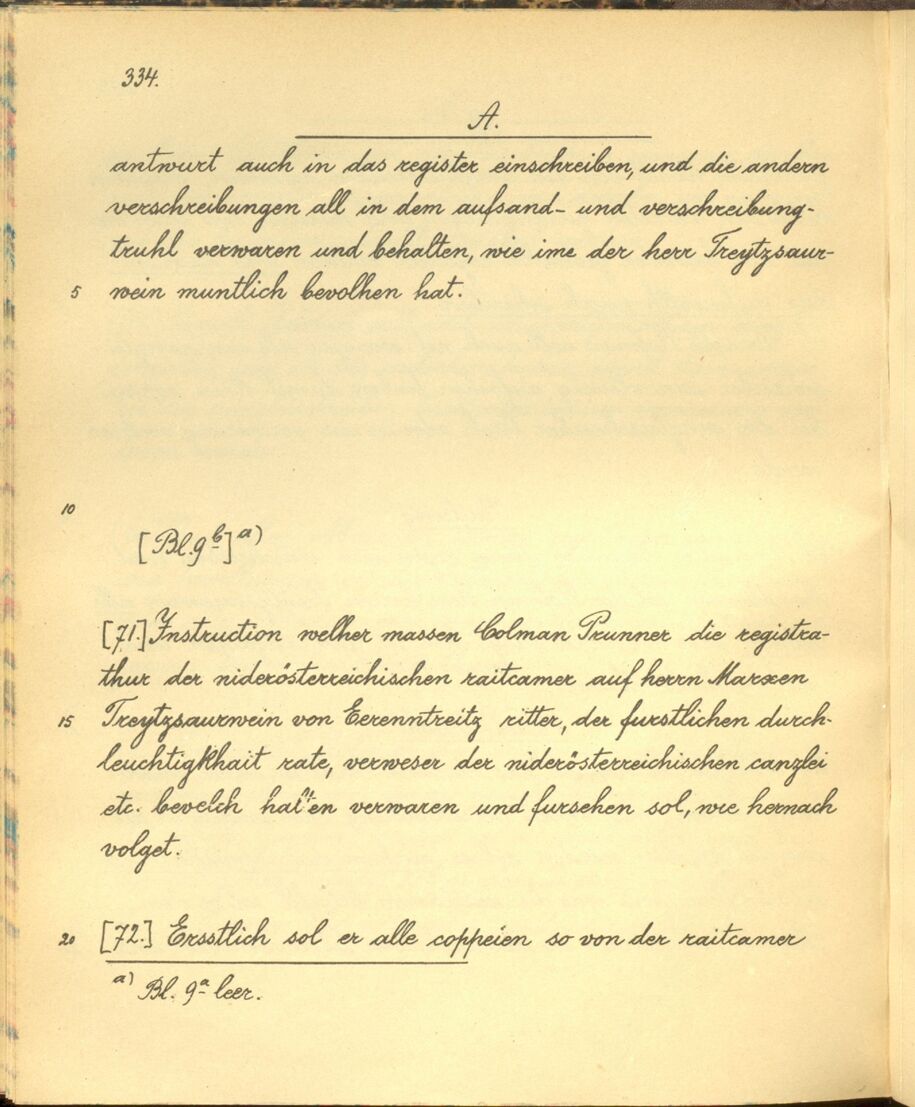 334.
A.
antwurt auch in das register einschreiben, und die andern
verschreibungen all in dem aufsand- und verschreibung-
truhl verwaren und behalten, wie ime der herr Treytzsaur-
5 wein muntlich bevolhen hat.
10
[Bl. 9b] a)
[71.] Instruction welher massen Colman Prunner die registra-
thur der niderösterreichischen raitcamer auf herrn Marxen
15 Treytzsaurwein von Eerenntreitz ritter, der furstlichen durch-
leuchtigkhait rate, verweser der niderösterreichischen canzlei
etc. bevelch halten verwaren und fursehen sol, wie hernach
volget.
20 [72.] Ersstlich sol er alle coppeien so von der raitcamer
a) Bl. 9a leer.